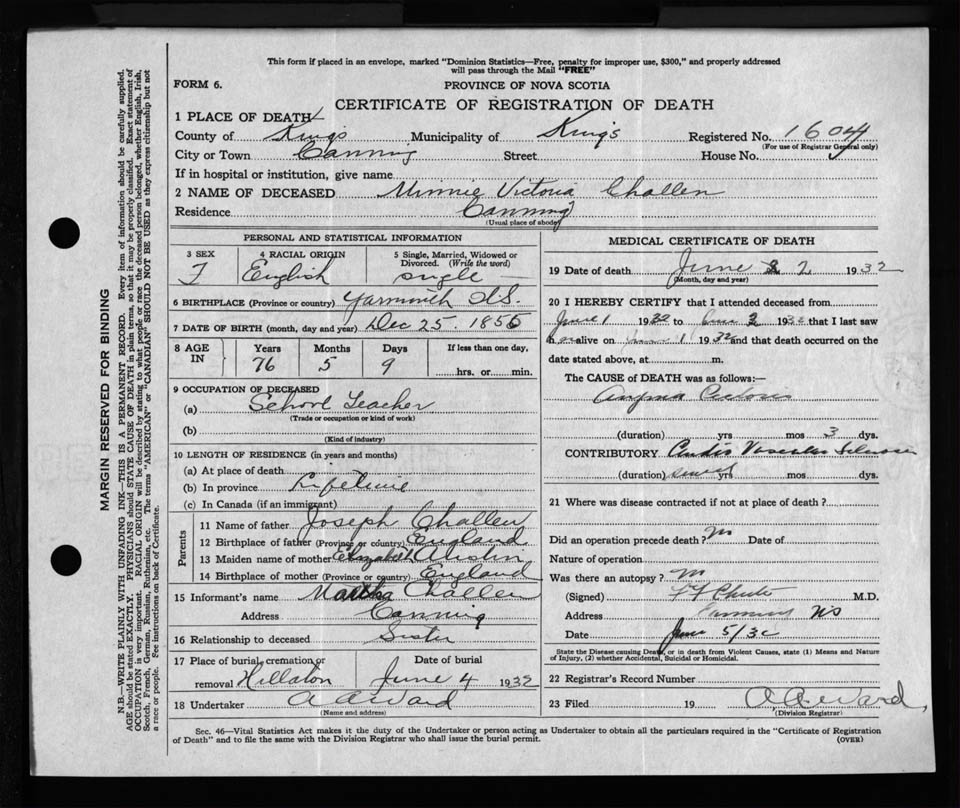 This form if placed in an envelope, marked "Dominion Statistics—Free, penalty for improper use, $300," and properly addressed
will pass through the Mail "FREE"
FORM 6.
PROVINCE OF NOVA SCOTIA
CERTIFICATE OF REGISTRATION OF DEATH
1 PLACE OF DEATH
County of Kings Municipality of Kings Registered No. 1604
(For use of Registrar General only)
City or Town Canning Street House No.
If in hospital or institution, give name
2 NAME OF DECEASED Minnie Victoria Challen
Residence Canning
(Usual place of abode)
PERSONAL AND STATISTICAL INFORMATION
3 SEX 4 RACIAL ORIGIN 5 Single, Married, Widowed or Divorced. (Write the word)
F English single
6 BIRTHPLACE (Province or country) Yarmouth N.S.
7 DATE OF BIRTH (month, day and year) Dec 25. 1855
8 AGE IN Years Months Days If less than one day,
76 5 9 hrs. or min.
9 OCCUPATION OF DECEASED
(a) School Teacher
(Trade or occupation or kind of work)
(b)
(Kind of industry)
10 LENGTH OF RESIDENCE (in years and months)
(a) At place of death
(b) In province Lifetime
(c) In Canada (if an immigrant)
Parents
11 Name of father Joseph Challen
12 Birthplace of father (Province or country) England
13 Maiden name of mother Elizabeth Austin
14 Birthplace of mother (Province or country) England
15 Informant's name Martha Challen
Address Canning
16 Relationship to deceased Sister
17 Place of burial, cremation or removal Hillaton Date of burial June 4 1932
18 Undertaker A A Ward
(Name and address)
MEDICAL CERTIFICATE OF DEATH
19 Date of death June 2 1932
(Month, day and year)
20 I HEREBY CERTIFY that I attended deceased from
June 1 1932 to June 2 1932 that I last saw
h er alive on June 1 1932 and that death occurred on the
date stated above, at m.
The CAUSE OF DEATH was as follows:—
Angina Pectoris
(duration) yrs mos 3 dys.
CONTRIBUTORY Cardio Vascular Sclerosis
(duration) several yrs mos dys.
21 Where was disease contracted if not at place of death?
Did an operation precede death? No Date of
Nature of operation
Was there an autopsy? No
(Signed) Chute M.D.
Address Canning NS
Date June 5/32
State the Disease causing Death, or in death from Violent Causes, state (1) Means and Nature
of Injury, (2) whether Accidental, Suicidal or Homicidal.
22 Registrar's Record Number
23 Filed 19 A A Ward,
(Division Registrar)
Sec. 46—Vital Statistics Act makes it the duty of the Undertaker or person acting as Undertaker to obtain all the particulars required in the "Certificate of Registration
of Death" and to file the same with the Division Registrar who shall issue the burial permit.
(OVER)
MARGIN RESERVED FOR BINDING
N.B.—WRITE PLAINLY WITH UNFADING INK—THIS IS A PERMANENT RECORD. Every item of information should be carefully supplied.
AGE should be stated EXACTLY. PHYSICIANS should STATE CAUSE OF DEATH in plain terms, so that it may be properly classified. Exact statement of
OCCUPATION is very important. RACIAL ORIGIN will be described by stating to what people or race the deceased person belonged, whether English, Irish,
Scotch, French, German, Russian, Ruthenian, etc. The terms "AMERICAN" or "CANADIAN" SHOULD NOT BE USED as they express citizenship but not
a race or people. See instructions on back of Certificate.